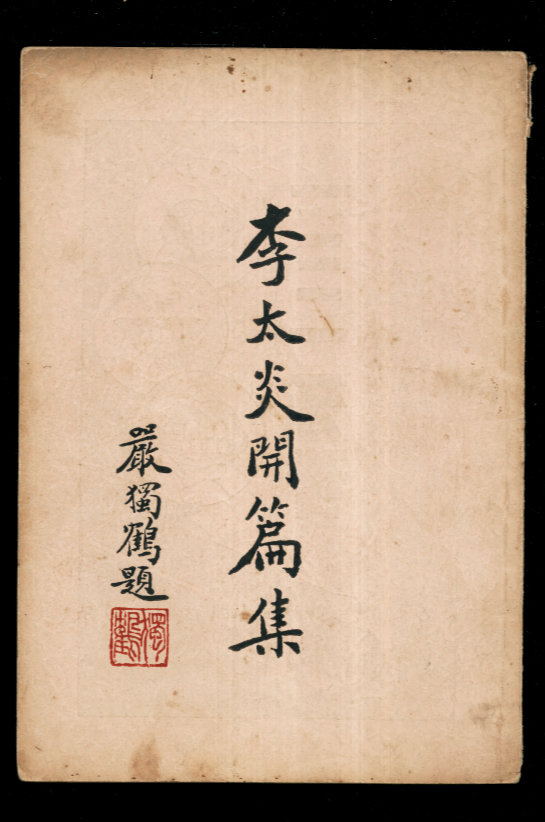 李太炎開篇集
嚴獨鶴題
獨鶴